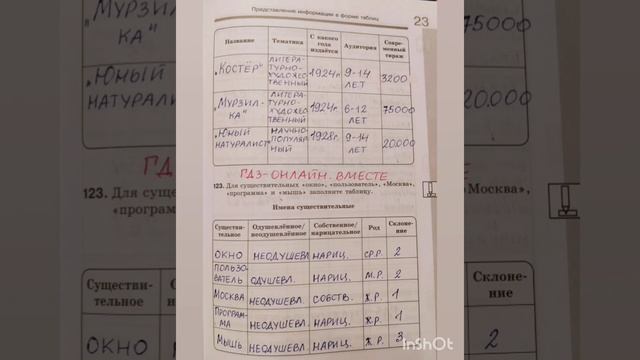 Представление информации в форме таблиц
23
Название Тематика С какого года издаётся Аудитория Современный тираж
„КОСТЁР“ ЛИТЕРАТУРНО-ХУДОЖЕСТВЕННЫЙ 1924г. 9-14 ЛЕТ 3200
„МУРЗИЛКА“ ЛИТЕРАТУРНО-ХУДОЖЕСТВЕННЫЙ 1924г. 6-12 ЛЕТ 75000
„ЮНЫЙ НАТУРАЛИСТ“ НАУЧНО-ПОПУЛЯРНЫЙ 1928г. 9-14 ЛЕТ 20.000
ГДЗ-ОНЛАЙН. ВМЕСТЕ
123. Для существительных «окно», «пользователь», «Москва»,
«программа» и «мышь» заполните таблицу.
Имена существительные
Существительное Одушевлённое/неодушевлённое Собственное/нарицательное Род Склонение
ОКНО НЕОДУШЕВЛ. НАРИЦ. СР.Р. 2
ПОЛЬЗОВАТЕЛЬ ОДУШЕВЛ. НАРИЦ. М.Р. 2
МОСКВА НЕОДУШЕВЛ. СОБСТВ. Ж.Р. 1
ПРОГРАММА НЕОДУШЕВЛ. НАРИЦ. Ж.Р. 1
МЫШЬ НЕОДУШЕВЛ. НАРИЦ. Ж.Р. 3
InShOt
„МУРЗИЛ
КА“
„ЮНЫЙ
НАТУРАЛИ
123. Для суще
«програм
Существительное
ОКНО
75000
20.000
«Москва»,
Склонение
2